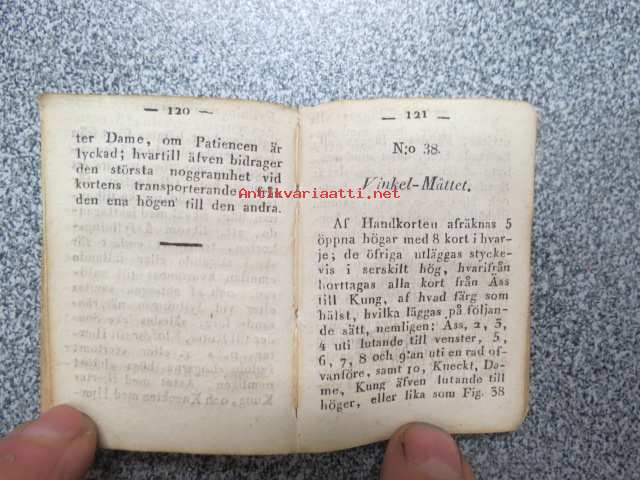 — 120 —
ter Dame, om Patiencen är
lyckad; hvartill äfven bidrager
den största noggrannhet vid
kortens transporterande från
den ena högen till den andra.
— 121 —
N:o 38.
Vinkel-Måttet.
Af Handkorten afräknas 5
öppna högar med 8 kort i hvar-
je; de öfriga utläggas stycke-
vis i serskilt hög, hvarifrån
borttagas alla kort från Äss
till Kung, af hvad färg som
hälst, hvilka läggas på följan-
de sätt, nemligen: Äss, 2, 3,
4 uti lutande till venster, 5,
6, 7, 8 och 9:an uti en rad of-
vanföre, samt 10, Kneckt, Da-
me, Kung äfven lutande till
höger, eller lika som Fig. 38
Antikvariaatti.net